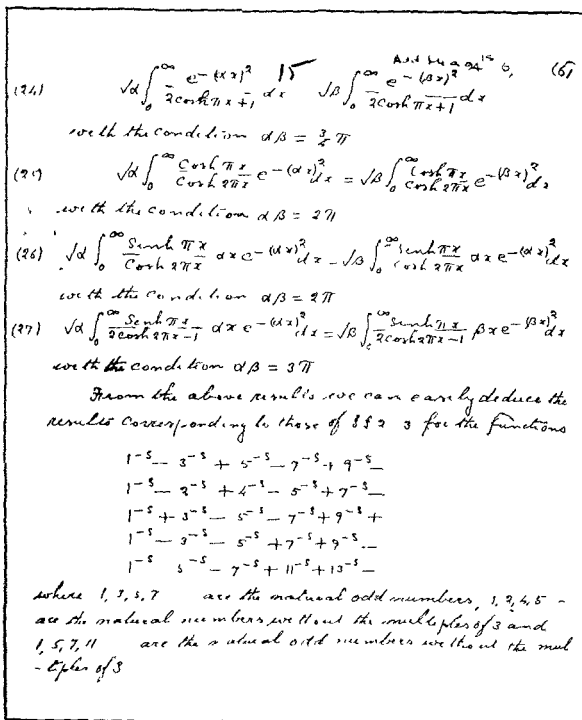 15 (6)
(24) √α ∫₀^∞ e^{-(αx)²} / (2cosh πx + 1) dx √β ∫₀^∞ e^{-(βx)²} / (2cosh πx + 1) dx
with the condition αβ = ¾π
(25) √α ∫₀^∞ (Cosh πx / Cosh 2πx) e^{-(αx)²} dx = √β ∫₀^∞ (Cosh πx / Cosh 2πx) e^{-(βx)²} dx
with the condition αβ = 2π
(26) √α ∫₀^∞ (Sinh πx / Cosh 2πx) αx e^{-(αx)²} dx - √β ∫₀^∞ (Sinh πx / Cosh 2πx) αx e^{-(αx)²} dx
with the condition αβ = 2π
(27) √α ∫₀^∞ (Sinh πx / (2cosh 2πx-1)) αx e^{-(αx)²} dx = √β ∫₀^∞ (Sinh πx / (2cosh 2πx-1)) βx e^{-(βx)²} dx
with the condition αβ = 3π
From the above results we can easily deduce the
results corresponding to those of §§ 2 3 for the functions
1^{-s} - 3^{-s} + 5^{-s} - 7^{-s} + 9^{-s} -
1^{-s} - 2^{-s} + 4^{-s} - 5^{-s} + 7^{-s} -
1^{-s} + 3^{-s} - 5^{-s} - 7^{-s} + 9^{-s} +
1^{-s} - 3^{-s} - 5^{-s} + 7^{-s} + 9^{-s} -
1^{-s} 5^{-s} - 7^{-s} + 11^{-s} + 13^{-s} -
where 1, 3, 5, 7 are the natural odd numbers, 1, 2, 4, 5 -
are the natural numbers without the multiples of 3 and
1, 5, 7, 11 are the natural odd numbers without the mul
-tiples of 3